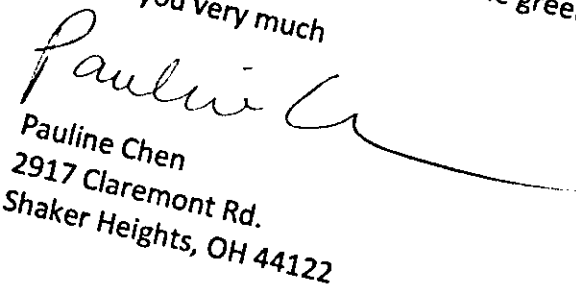 you very much
Pauline Ch
Pauline Chen
2917 Claremont Rd.
Shaker Heights, OH 44122